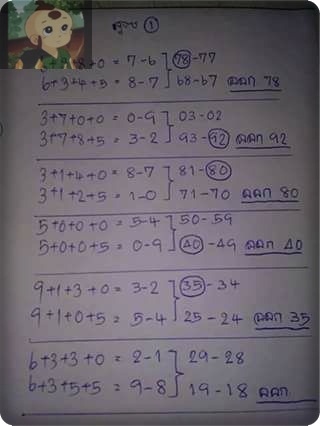 สูตร ①
+8+0 = 7-6 78-77
6+3+4+5 = 8-7 68-67 ออก 78
3+7+0+0 = 0-9 03-02
3+7+8+5 = 3-2 93-92 ออก 92
3+1+4+0 = 8-7 81-80
3+1+2+5 = 1-0 71-70 ออก 80
5+0+0+0 = 5-4 50-59
5+0+0+5 = 0-9 40-49 ออก 40
9+1+3+0 = 3-2 35-34
9+1+0+5 = 5-4 25-24 ออก 35
6+3+3+0 = 2-1 29-28
6+3+5+5 = 9-8 19-18 ออก